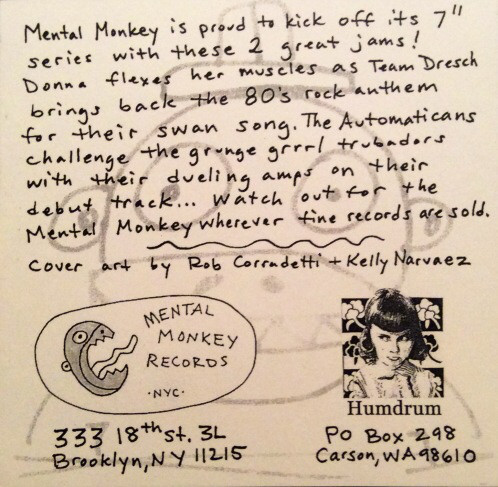 Mental Monkey is proud to kick off its 7"
series with these 2 great jams!
Donna flexes her muscles as Team Dresch
brings back the 80's rock anthem
for their swan song. The Automaticans
challenge the grunge grrrl trubadors
with their dueling amps on their
debut track... Watch out for the
Mental Monkey wherever fine records are sold.
Cover art by Rob Corradetti + Kelly Narvaez
MENTAL
MONKEY
RECORDS
·NYC·
333 18th st. 3L
Brooklyn, NY 11215
Humdrum
PO Box 298
Carson, WA 98610